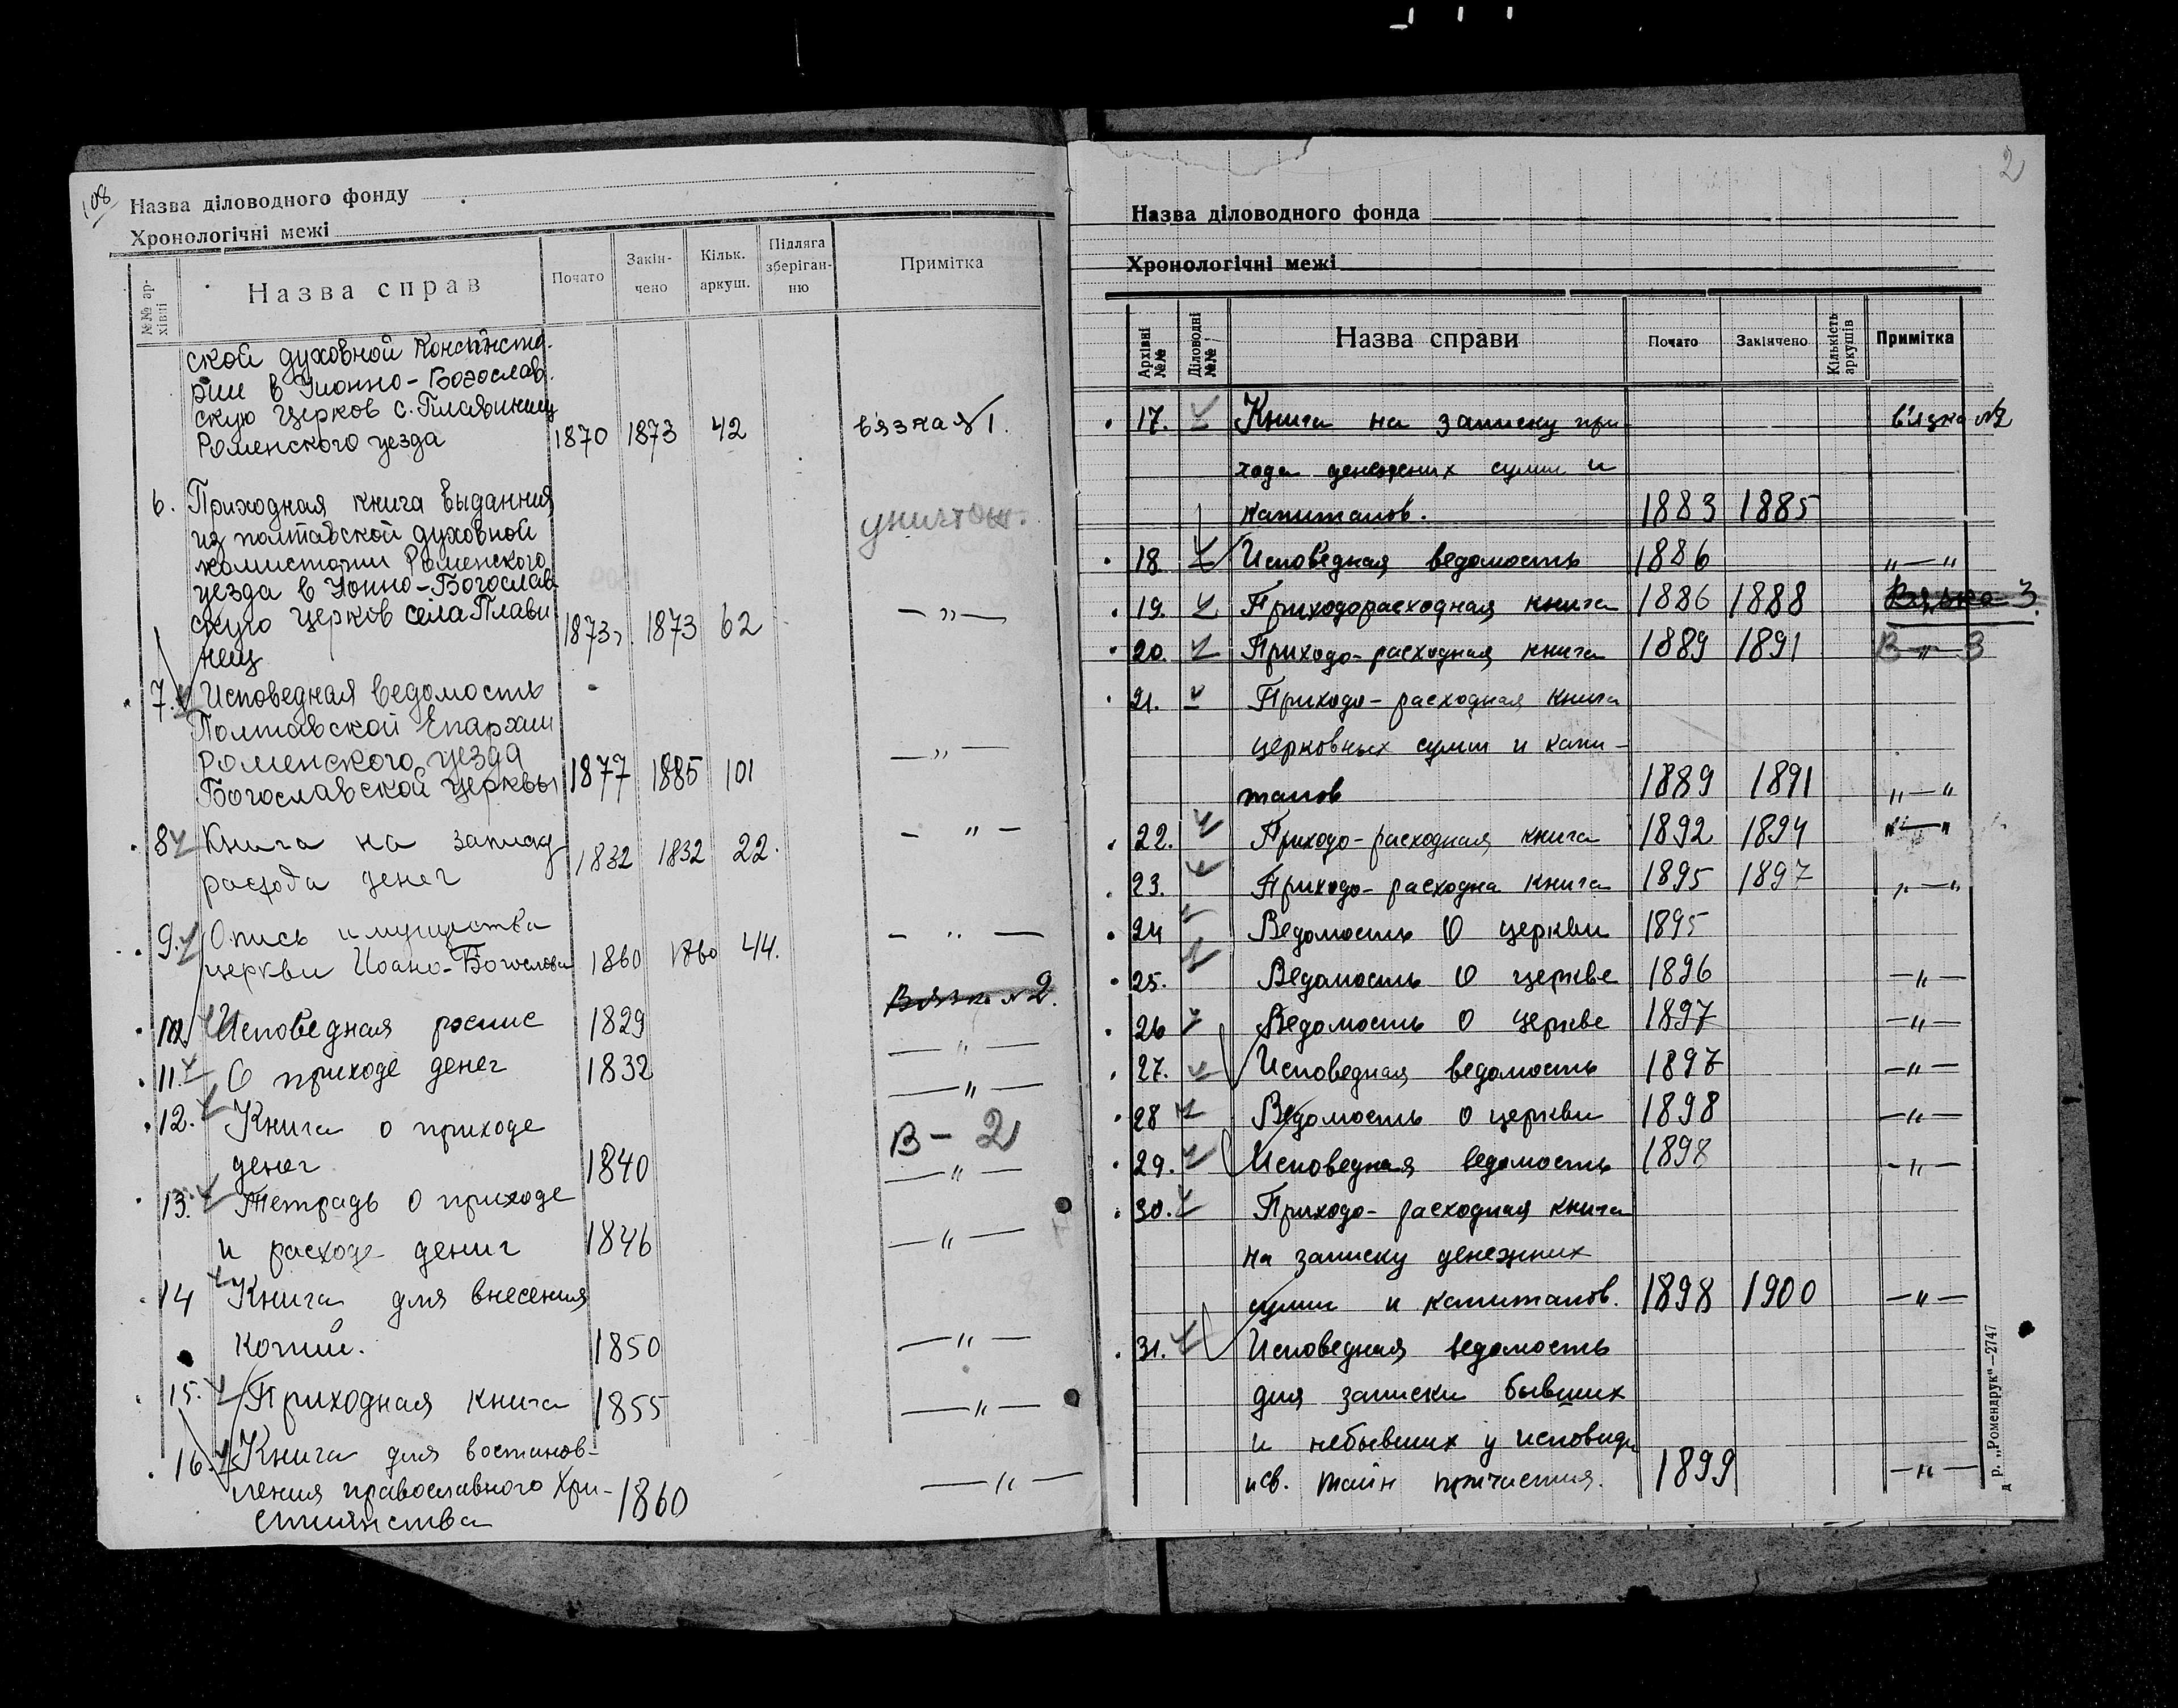 108
Назва діловодного фонду
Хронологічні межі
№№ ар-
хівні
Назва справ
Почато
Закін-
чено
Кільк.
аркуш.
Підляга
зберіган-
ню
Примітка
ской духовной Консинсто-
рии в Иоанно-Богослав.
скую Церков с. Плавинищ
Роменского уезда 1870 1873 42 вязкая 1.
6. Приходная книга выданния
из полтавской духовной уничтож.
Роменского
уезда в Иоанно-Богослав
скую церков села Плави 1873 1873 62 — „ —
нищ
7. Исповедная ведомость
Полтавской Епархии
Роменского уезда — „ —
Богославской Церквы 1877 1885 101
8 Книга на записку — „ —
расхода денег 1832 1832 22.
9. Опись имущества
церкви Иоано-Богослова 1860 1860 44. — „ —
Вязка №2.
10 Исповедная роспис 1829 — „ —
11. О приходе денег 1832 — „ —
12. Книга о приходе В - 2
денег 1840 — „ —
13. Тетрадь о приходе
и расходе дениг 1846 — „ —
14 Книга для внесения
копий. 1850 — „ —
15. Приходная книга 1855 — „ —
16. Книга для востанов-
ления православного Хри- 1860 — „ —
стиянства
2
Назва діловодного фонда
Хронологічні межі
Архівні
№№
Діловодні
№№
Назва справи
Почато
Закінчено
Кількість
аркушів
Примітка
17. Книга на записку при в'язка №2
хода денежних сумм и
капиталов. 1883 1885
18. Исповедная ведомость 1886 „—„
19. Приходорасходная книга 1886 1888 Вязка 3.
20. Приходо-расходная книга 1889 1891 В — „ — 3
21. Приходо-расходная книга
церковных сумм и капи-
талов 1889 1891 „—„
22. Приходо-расходная книга 1892 1894 „—„
23. Приходо-расходна книга 1895 1897 „—„
24 Ведомость О церкви 1895
25. Ведомость О церкве 1896 — „ —
26 Ведомость О церкве 1897 — „ —
27. Исповедная ведомость 1897 — „ —
28 Ведомость о церкви 1898 — „ —
29. Исповедная ведомость 1898 — „ —
30. Приходо-расходная книга
на записку денежних
сумм и капиталов. 1898 1900 — „ —
31. Исповедная ведомость
для записки бывших
и небывших у исповиди
и св. тайн причастия. 1899 — „ —
д р. „Ромендрук“—2747